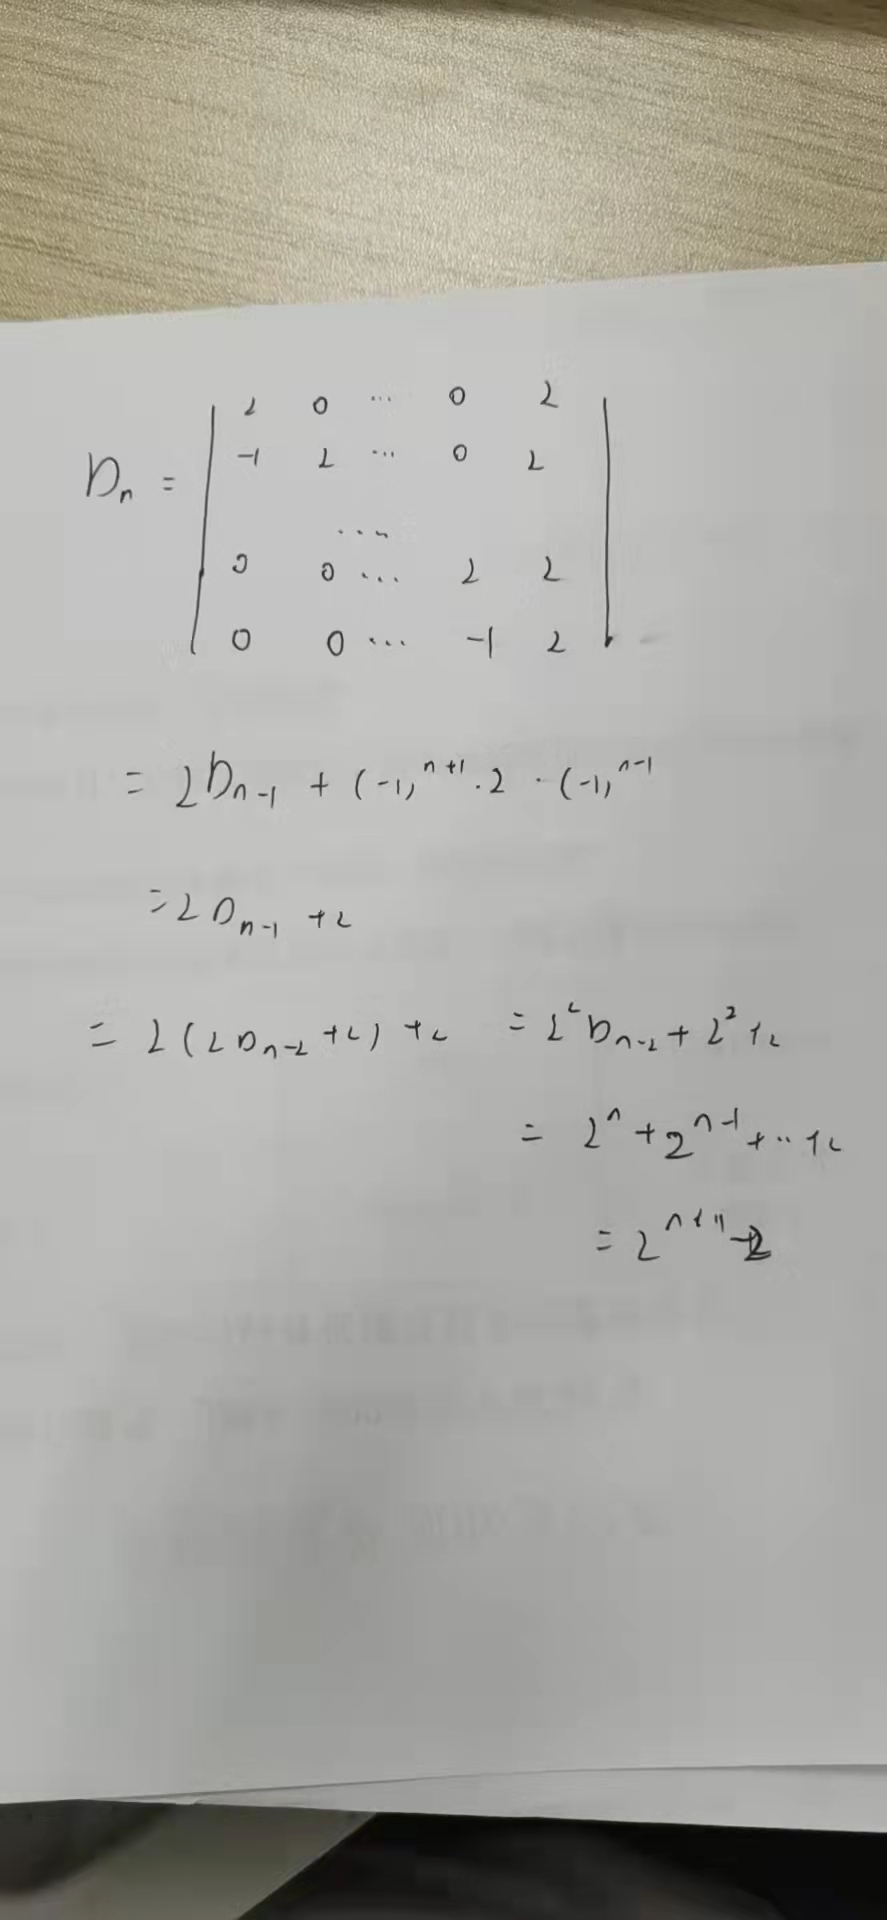 2 0 ... 0 2
-1 2 ... 0 2
Dn =
...
0 0 ... 2 2
0 0 ... -1 2
= 2Dn-1 + (-1)^n+1 · 2 · (-1)^n-1
= 2Dn-1 + 2
= 2(2Dn-2 + 2) + 2 = 2^2Dn-2 + 2^2 + 2
= 2^n + 2^n-1 + ·· + 2
= 2^n+1 - 2